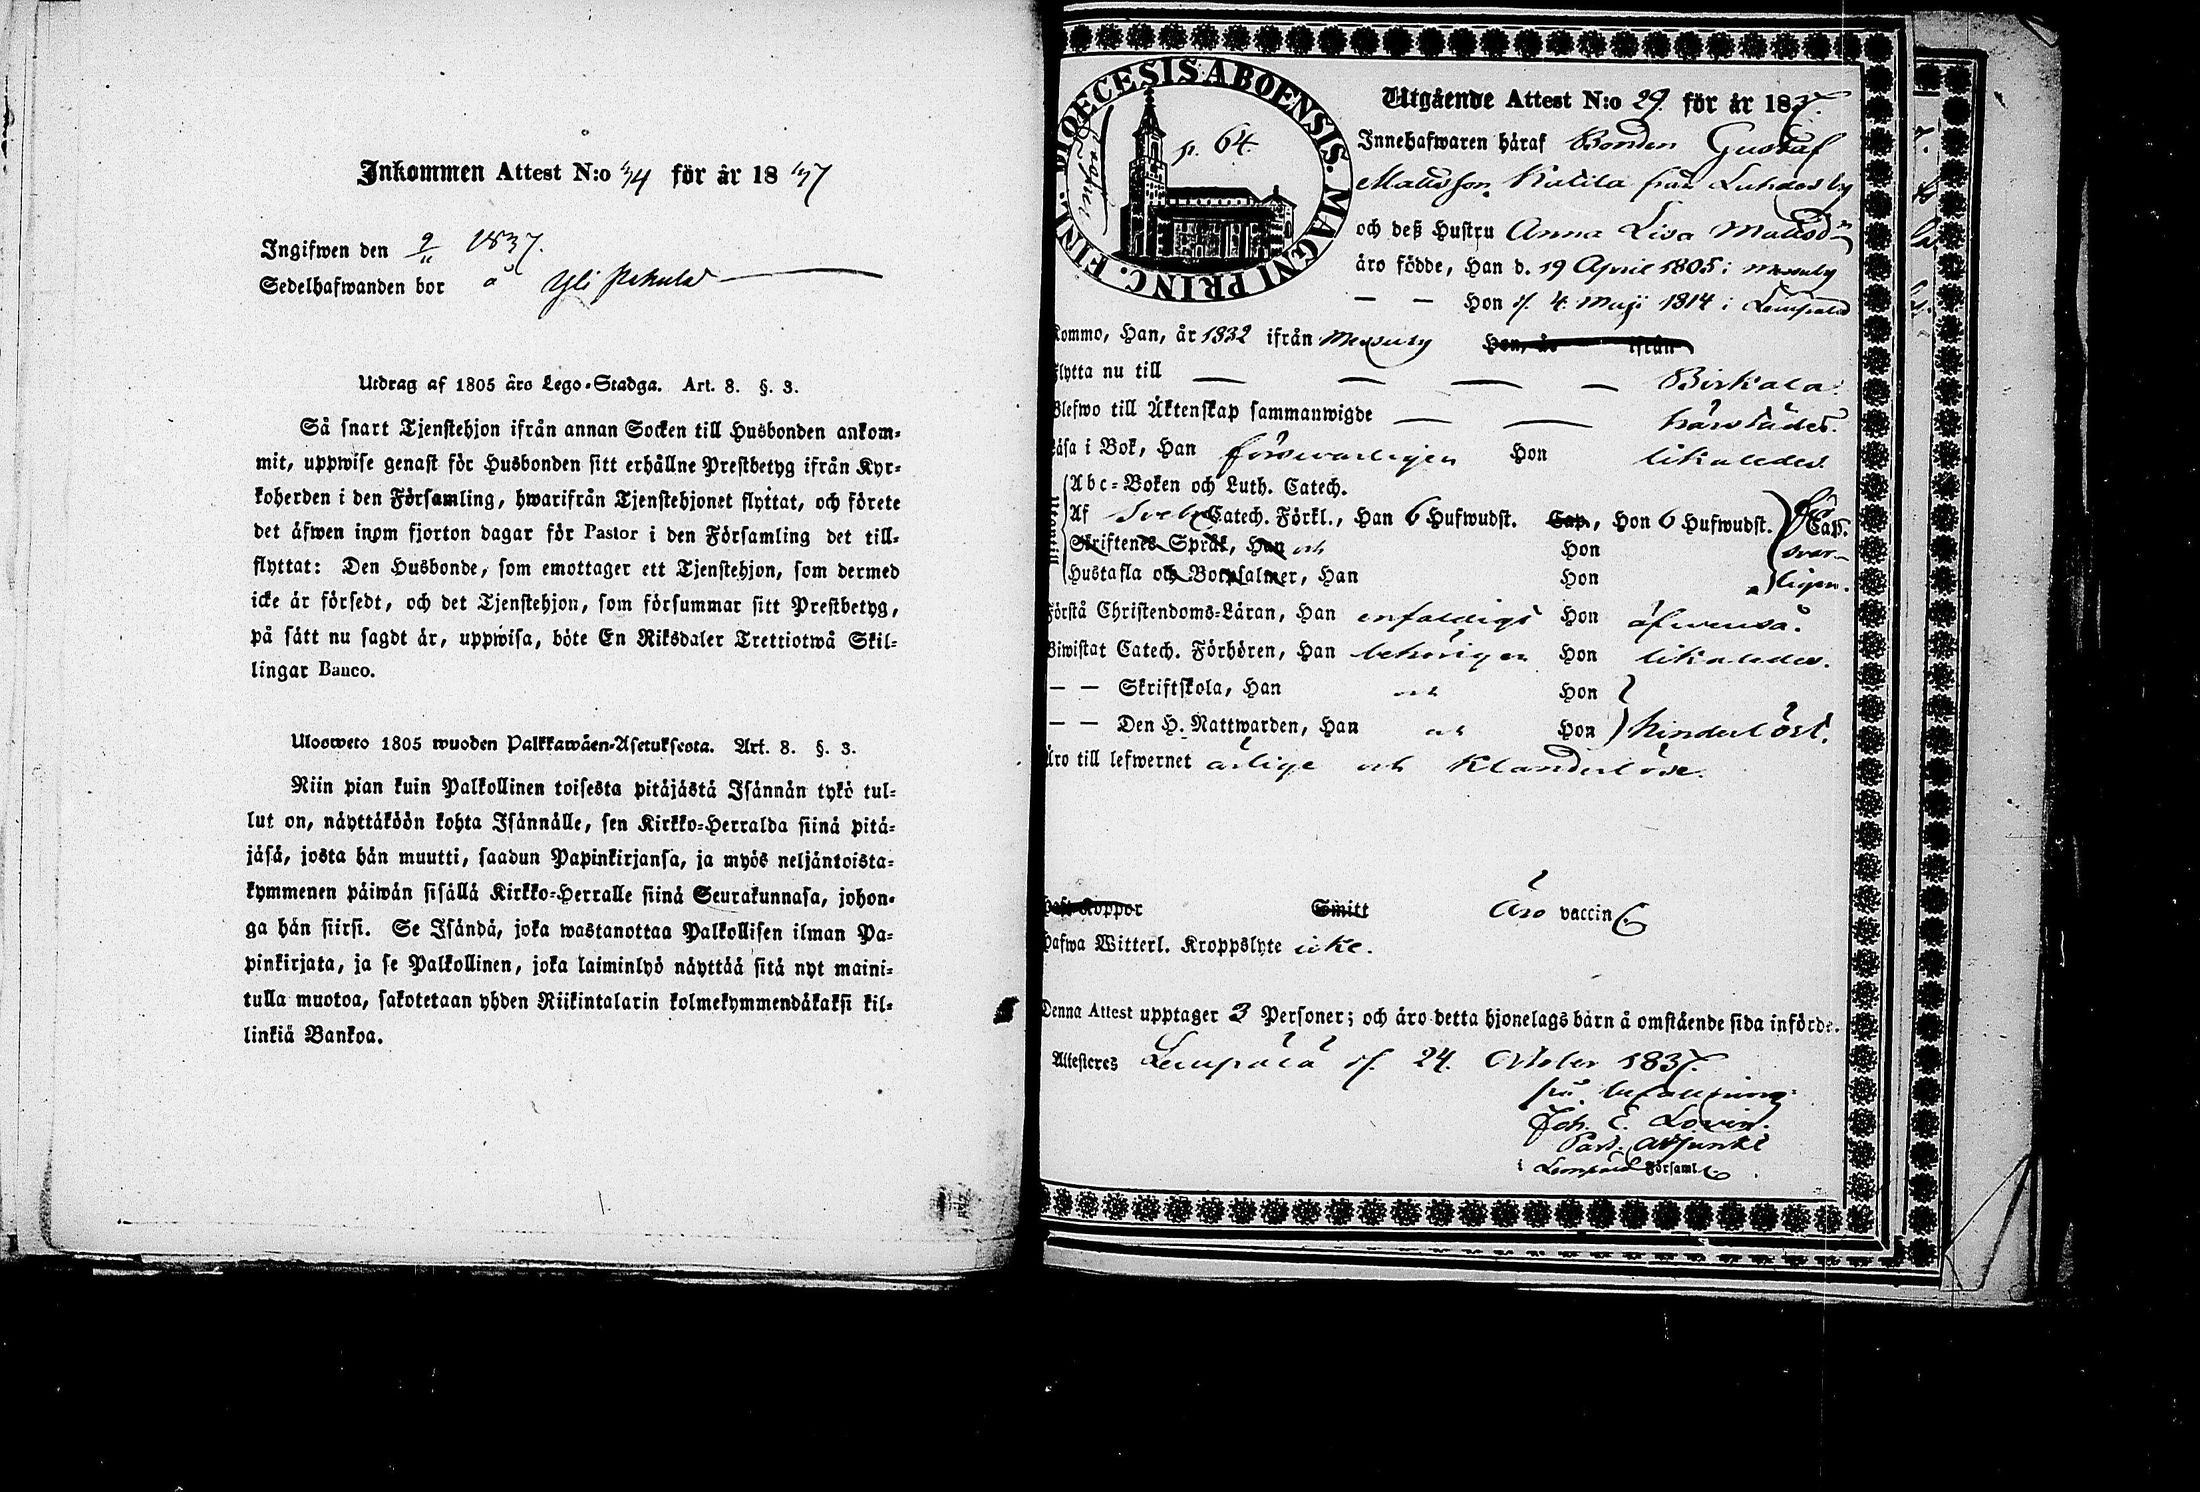 Inkommen Attest N:o 34 för år 1837
Ingifwen den 9/11 1837.
Sedelhafwanden bor å Yli
Utdrag af 1805 års Lego-Stadga. Art. 8. §. 3.
Så snart Tjenstehjon ifrån annan Socken till Husbonden ankom-
mit, uppwise genast för Husbonden sitt erhållne Prestbetyg ifrån Kyr-
koherden i den Församling, hwarifrån Tjenstehjonet flyttat, och förete
det äfwen inom fjorton dagar för Pastor i den Församling det till-
flyttat: Den Husbonde, som emottager ett Tjenstehjon, som dermed
icke är försedt, och det Tjenstehjon, som försummar sitt Prestbetyg,
på sätt nu sagdt är, uppwisa, böte En Riksdaler Trettiotwå Skil-
lingar Banco.
Ulosweto 1805 wuoden Palkkawäen-Asetuksesta. Art. 8. §. 3.
Niin pian kuin Palkollinen toisesta pitäjästä Isännän tykö tul-
lut on, näyttäköön kohta Isännälle, sen Kirkko-Herralda siinä pitä-
jäsä, josta hän muutti, saadun Papinkirjansa, ja myös neljäntoista-
kymmenen päiwän sisällä Kirkko-Herralle siinä Seurakunnasa, johon-
ga hän siirsi. Se Isändä, joka wastanottaa Palkollisen ilman Pa-
pinkirjata, ja se Palkollinen, joka laiminlyö näyttää sitä nyt maini-
tulla muotoa, sakotetaan yhden Riikintalarin kolmekymmendäkaksi kil-
linkiä Bankoa.
DIOECESIS ABOENSIS. MAGNI PRINC. FINL.
p. 64.
Utgående Attest N:o 29. för år 1837.
Innehafwaren häraf Bonden Gustaf
Mattsson Kulila från Luhdasby
och deß Hustru Anna Lisa Mattsdr
äro födde, Han d. 19 April 1805 i Messuby
— — Hon d. 4. Maji 1814 i Lempälä
Kommo, Han, år 1832 ifrån Messuby Hon, år ifrån
Flytta nu till — — — — Birkala.
Blefwo till Äktenskap sammanwigde — — härstädes.
Läsa i Bok, Han försvarligen Hon likaledes.
Abc-Boken och Luth. Catech.
Af Sveb. Catech. Förkl., Han 6 Hufwudst. Cap., Hon 6 Hufwudst. Cap.
Skriftenes Språk, Han och Hon
Hustafla och Botpsalmer, Han Hon
Förstå Christendoms-Läran, Han enfaldigt Hon äfwenså.
Biwistat Catech. Förhören, Han behörigen Hon likaledes.
— — Skriftskola, Han och Hon
— — Den H. Nattwarden, Han och Hon hinderlöst.
Äro till lefwernet ärlige och klanderlöse.
Haft Koppor Smitt Äro vaccin.
Hafwa Witterl. Kroppslyte icke.
Denna Attest upptager 3 Personer; och äro detta hjonelags barn å omstående sida införde.
Attesteres Lempälä d. 24. October 1837.
på befallning
Joh. E. Lovin.
Past. Adjunkt
i Lempälä Församl.